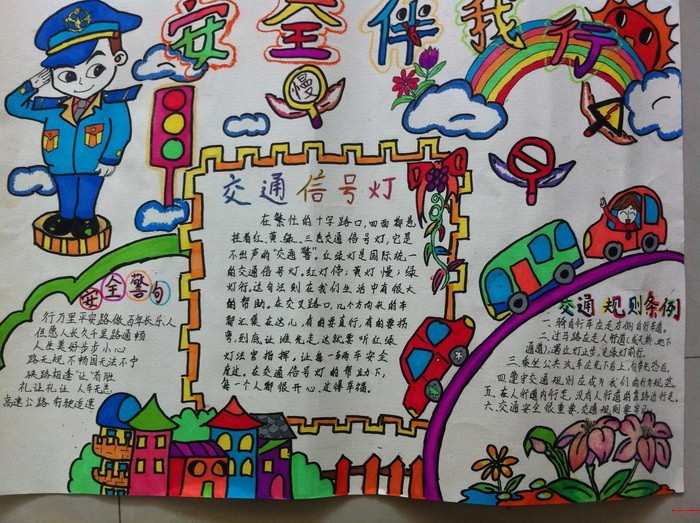 安全伴我行
慢
交通信号灯
在繁忙的十字路口,四面都
挂着红、黄、绿、三色交通信号灯,它是
不出声的“交通警”。红绿灯是国际统一
的交通信号灯。红灯停;黄灯慢;绿
灯行,这自法则在我们生活中有很大
的帮助。在交叉路口,几个方向来的车
都汇集在这儿,有的要直行,有的要拐
弯,到底让谁先走这就要听红绿
灯法官指挥,让每一辆车安全
度过。在交通信号灯的帮助下,
每一个人都很开心,
安全警句
行万里平安路做百年长乐人
但愿人长久千里路通畅
人生美好步步小心
路无规不畅国无法不宁
狭路相逢“让”者胜
礼让礼让人车无恙
高速公路有驶适速
交通规则条例
一、骑自行车应走右侧自行车道。
二、过马路应走人行道(或天桥、地下
通道),遇红灯止步,见绿灯前行。
三、乘坐公共汽车应先下后上,
四、遵守交通规则应成为我们的行为规范
五、在人行道内行走,没有人行道的靠路边行走。
六、交通安全很重要,交通规则要